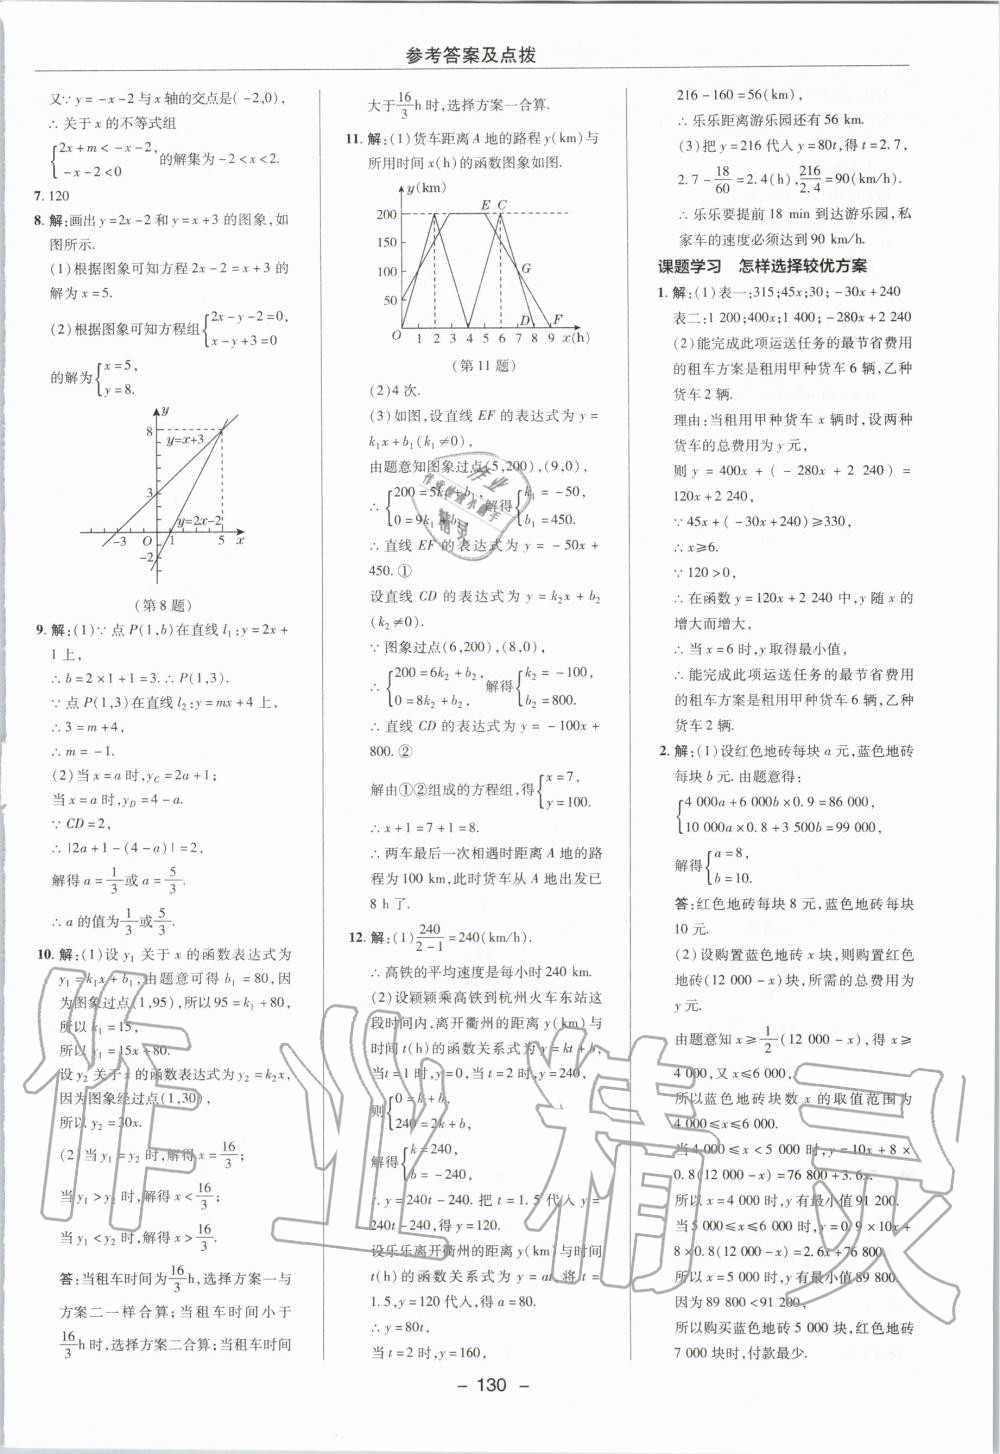 参考答案及点拨
又∵y=-x-2与x轴的交点是(-2,0),
∴关于x的不等式组
{2x+m<-x-2,
-x-2<0 的解集为-2<x<2.
7. 120
8. 解:画出y=2x-2和y=x+3的图象,如
图所示.
(1)根据图象可知方程2x-2=x+3的
解为x=5.
(2)根据图象可知方程组{2x-y-2=0,
x-y+3=0
的解为{x=5,
y=8.
y
8
y=x+3
3
y=2x-2
-3 O 1 5 x
-2
(第8题)
9. 解:(1)∵点P(1,b)在直线l₁:y=2x+
1上,
∴b=2×1+1=3.∴P(1,3).
∵点P(1,3)在直线l₂:y=mx+4上,
∴3=m+4,
∴m=-1.
(2)当x=a时,y_C=2a+1;
当x=a时,y_D=4-a.
∵CD=2,
∴|2a+1-(4-a)|=2,
解得a=1/3或a=5/3.
∴a的值为1/3或5/3.
10. 解:(1)设y₁关于x的函数表达式为
y₁=k₁x+b₁,由题意可得b₁=80,因
为图象过点(1,95),所以95=k₁+80,
所以k₁=15,
所以y₁=15x+80.
设y₂关于x的函数表达式为y₂=k₂x,
因为图象经过点(1,30),
所以y₂=30x.
(2)当y₁=y₂时,解得x=16/3;
当y₁>y₂时,解得x<16/3;
当y₁<y₂时,解得x>16/3.
答:当租车时间为16/3 h,选择方案一与
方案二一样合算;当租车时间小于
16/3 h时,选择方案二合算;当租车时间
大于16/3 h时,选择方案一合算.
11. 解:(1)货车距离A地的路程y(km)与
所用时间x(h)的函数图象如图.
y(km)
E C
200
150
100
G
50
D F
O 1 2 3 4 5 6 7 8 9 x(h)
(第11题)
(2)4次.
(3)如图,设直线EF的表达式为y=
k₁x+b₁(k₁≠0),
由题意知图象过点(5,200),(9,0),
∴{200=5k₁+b₁,
0=9k₁+b₁, 解得{k₁=-50,
b₁=450.
∴直线EF的表达式为y=-50x+
450.①
设直线CD的表达式为y=k₂x+b₂
(k₂≠0).
∵图象过点(6,200),(8,0),
∴{200=6k₂+b₂,
0=8k₂+b₂, 解得{k₂=-100,
b₂=800.
∴直线CD的表达式为y=-100x+
800.②
解由①②组成的方程组,得{x=7,
y=100.
∴x+1=7+1=8.
∴两车最后一次相遇时距离A地的路
程为100 km,此时货车从A地出发已
8 h了.
12. 解:(1)240/(2-1)=240(km/h).
∴高铁的平均速度是每小时240 km.
(2)设颖颖乘高铁到杭州火车东站这
段时间内,离开衢州的距离y(km)与
时间t(h)的函数关系式为y=kt+b,
当t=1时,y=0,当t=2时,y=240,
则{0=k+b,
240=2k+b,
解得{k=240,
b=-240,
∴y=240t-240.把t=1.5代入y=
240t-240,得y=120.
设乐乐离开衢州的距离y(km)与时间
t(h)的函数关系式为y=at,将t=
1.5,y=120代入,得a=80.
∴y=80t,
当t=2时,y=160,
216-160=56(km),
∴乐乐距离游乐园还有56 km.
(3)把y=216代入y=80t,得t=2.7,
2.7-18/60=2.4(h),216/2.4=90(km/h).
∴乐乐要提前18 min到达游乐园,私
家车的速度必须达到90 km/h.
课题学习 怎样选择较优方案
1. 解:(1)表一:315;45x;30;-30x+240
表二:1 200;400x;1 400;-280x+2 240
(2)能完成此项运送任务的最节省费用
的租车方案是租用甲种货车6辆,乙种
货车2辆.
理由:当租用甲种货车x辆时,设两种
货车的总费用为y元,
则y=400x+(-280x+2 240)=
120x+2 240,
∵45x+(-30x+240)≥330,
∴x≥6.
∵120>0,
∴在函数y=120x+2 240中,y随x的
增大而增大,
∴当x=6时,y取得最小值,
∴能完成此项运送任务的最节省费用
的租车方案是租用甲种货车6辆,乙种
货车2辆.
2. 解:(1)设红色地砖每块a元,蓝色地砖
每块b元.由题意得:
{4 000a+6 000b×0.9=86 000,
10 000a×0.8+3 500b=99 000,
解得{a=8,
b=10.
答:红色地砖每块8元,蓝色地砖每块
10元.
(2)设购置蓝色地砖x块,则购置红色
地砖(12 000-x)块,所需的总费用为
y元.
由题意知x≥1/2(12 000-x),得x≥
4 000,又x≤6 000,
所以蓝色地砖块数x的取值范围为
4 000≤x≤6 000.
当4 000≤x<5 000时,y=10x+8×
0.8(12 000-x)=76 800+3.6x.
所以x=4 000时,y有最小值91 200.
当5 000≤x≤6 000时,y=0.9×10x+
8×0.8(12 000-x)=2.6x+76 800.
所以x=5 000时,y有最小值89 800.
因为89 800<91 200,
所以购买蓝色地砖5 000块,红色地砖
7 000块时,付款最少.
- 130 -
作业精灵